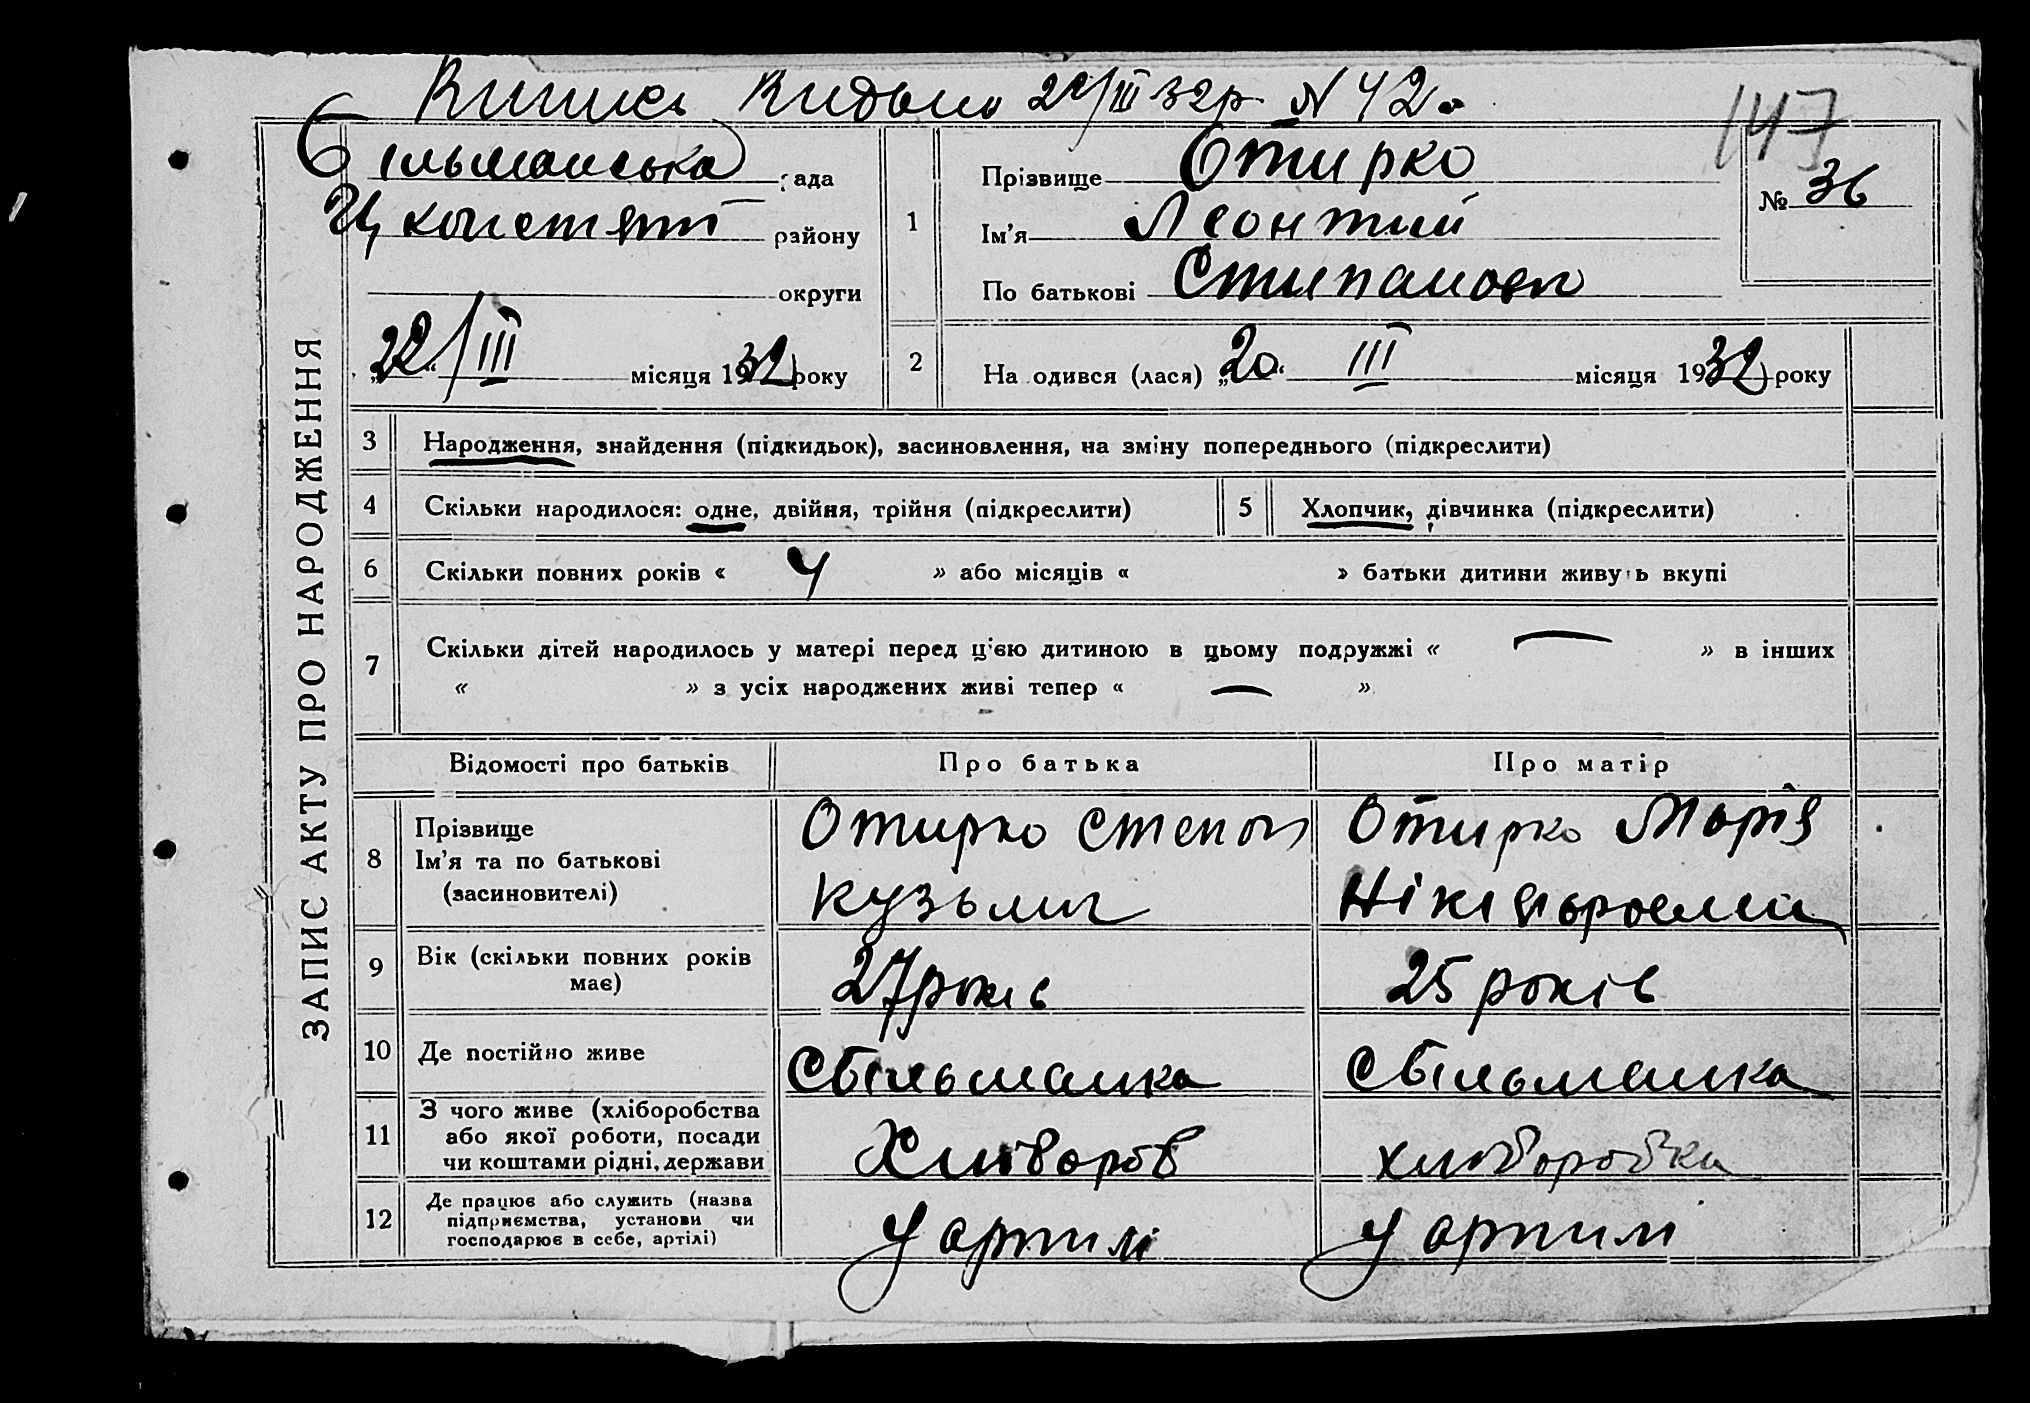 Випись Видано 22/III 32р. N 42.
147
Більманська рада
Цуконстянт району
округи
"22" III місяця 1932 року
1
Прізвище Отирко
Ім'я Леонтий
По батькові Стипанови
№ 36
2
На одився (лася) „20" III місяця 1932 року
ЗАПИС АКТУ ПРО НАРОДЖЕННЯ
3 Народження, знайдення (підкидьок), засиновлення, на зміну попереднього (підкреслити)
4 Скільки народилося: одне, двійня, трійня (підкреслити) 5 Хлопчик, дівчинка (підкреслити)
6 Скільки повних років « 4 » або місяців « » батьки дитини живуть вкупі
7 Скільки дітей народилось у матері перед ц'єю дитиною в цьому подружжі « — » в інших
« » з усіх народжених живі тепер « — »
Відомості про батьків Про батька Про матір
8 Прізвище
Ім'я та по батькові
(засиновителі)
Отирко Степан
Кузьмич
Отирко Марія
9 Вік (скільки повних років
має)
27 років 25 років
10 Де постійно живе С Більманка С Більманка
11 З чого живе (хліборобства
або якої роботи, посади
чи коштами рідні, держави
Хлібороб хліборобка
12 Де працює або служить (назва
підприємства, установи чи
господарює в себе, артілі)
У артилі У артилі